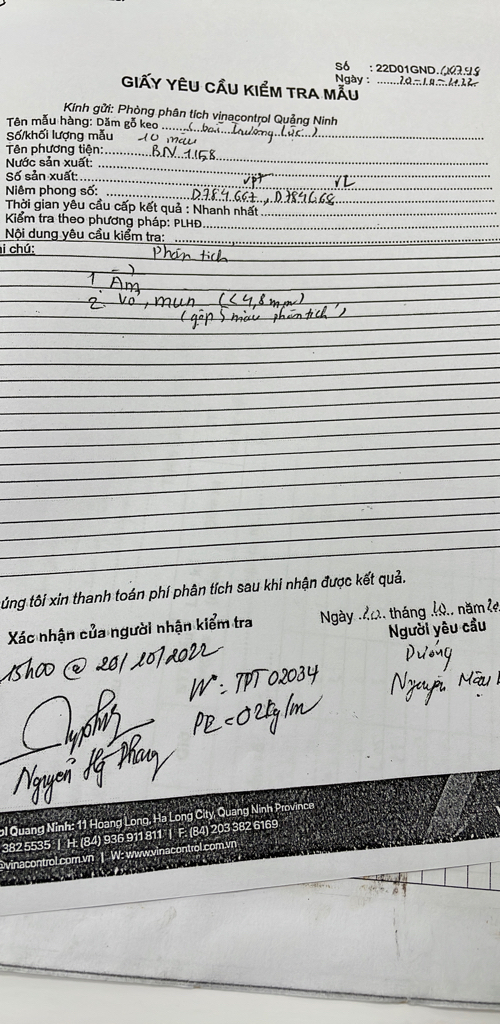 Số : 22D01GND.
Ngày : 20-10-2022
GIẤY YÊU CẦU KIỂM TRA MẪU
Kính gửi: Phòng phân tích vinacontrol Quảng Ninh
Tên mẫu hàng: Dăm gỗ keo
Số/khối lượng mẫu 10 mẫu
Tên phương tiện: BN 1158
Nước sản xuất:
Số sản xuất: VPT VL
Niêm phong số: D784667, D784668
Thời gian yêu cầu cấp kết quả : Nhanh nhất
Kiểm tra theo phương pháp: PLHĐ
Nội dung yêu cầu kiểm tra:
hi chú: Phân tích
1. Ẩm
2. Vỏ, mùn (<4,8mm)
(gộp 5 mẫu phân tích)
úng tôi xin thanh toán phí phân tích sau khi nhận được kết quả.
Ngày 20 tháng 10 năm
Xác nhận của người nhận kiểm tra
Người yêu cầu
15h00 @ 20/10/2022
Dương
W: TPT 02034
PR = 02kg/m
Nguyễn
Nguyễn
ol Quang Ninh: 11 Hoang Long, Ha Long City, Quang Ninh Province
382 5535 | H: (84) 936 911 811 | F: (84) 203 382 6169
@vinacontrol.com.vn | W: www.vinacontrol.com.vn